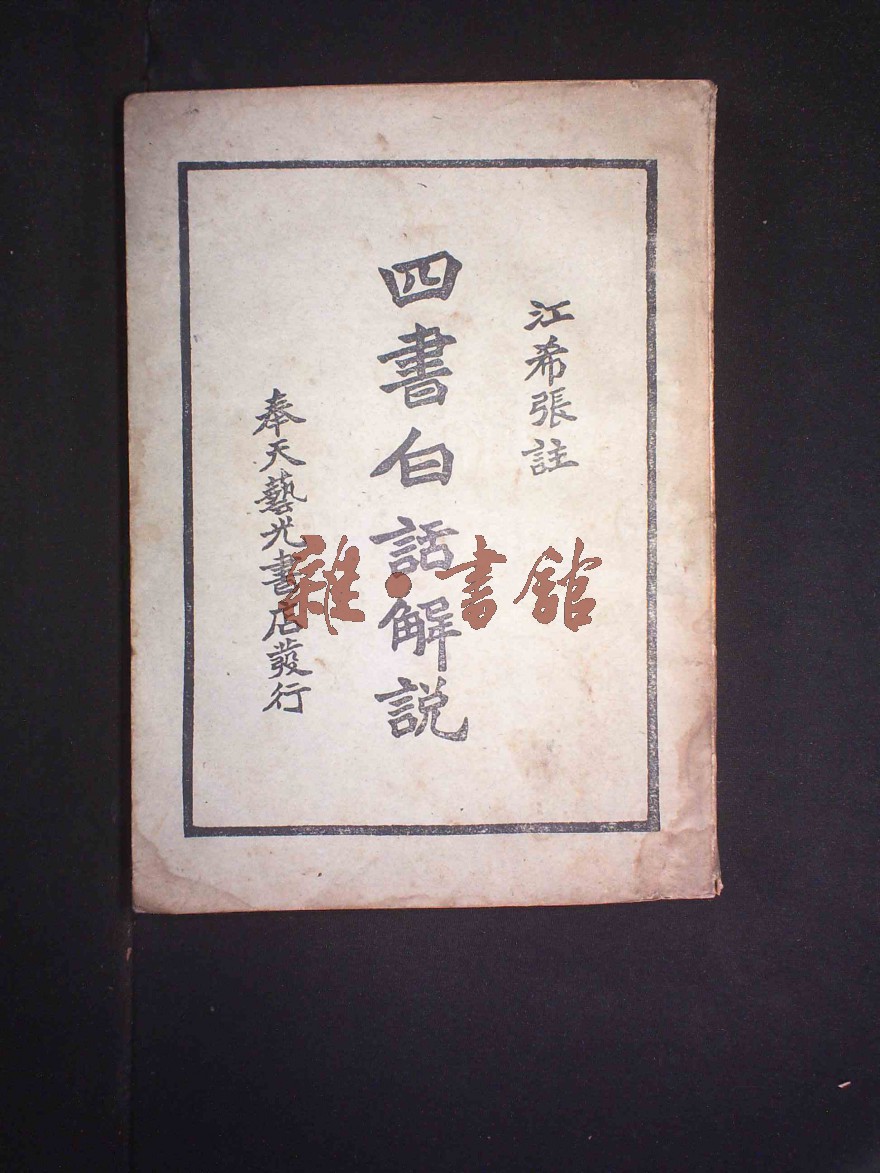 江希張註
四書白話解説
奉天藝光書店發行
雜·書館